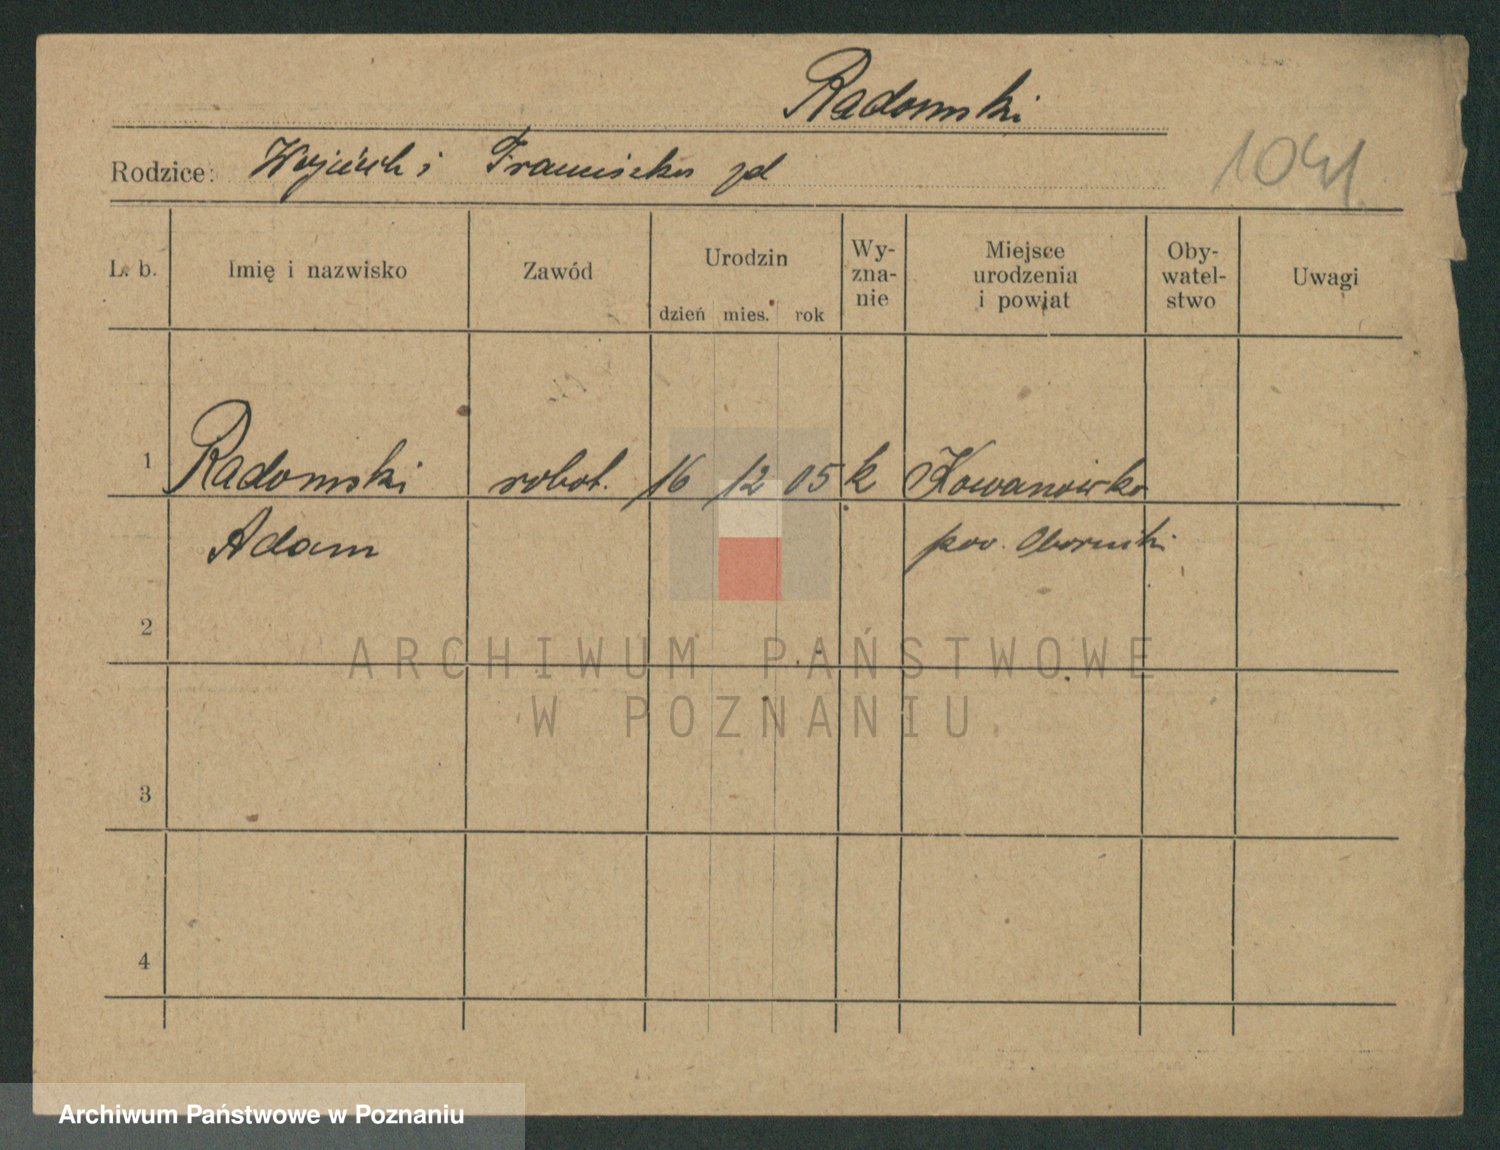 Radomski
Rodzice: Wojciech i Franciszka
1041
L. b. Imię i nazwisko Zawód Urodzin Wy- Miejsce Oby- Uwagi
zna- urodzenia watel-
nie i powiat stwo
dzień mies. rok
1 Radomski robot. 16 12 05 k Kowanówko
Adam pow. Oborniki
2
3
4
ARCHIWUM PAŃSTWOWE
W POZNANIU
Archiwum Państwowe w Poznaniu